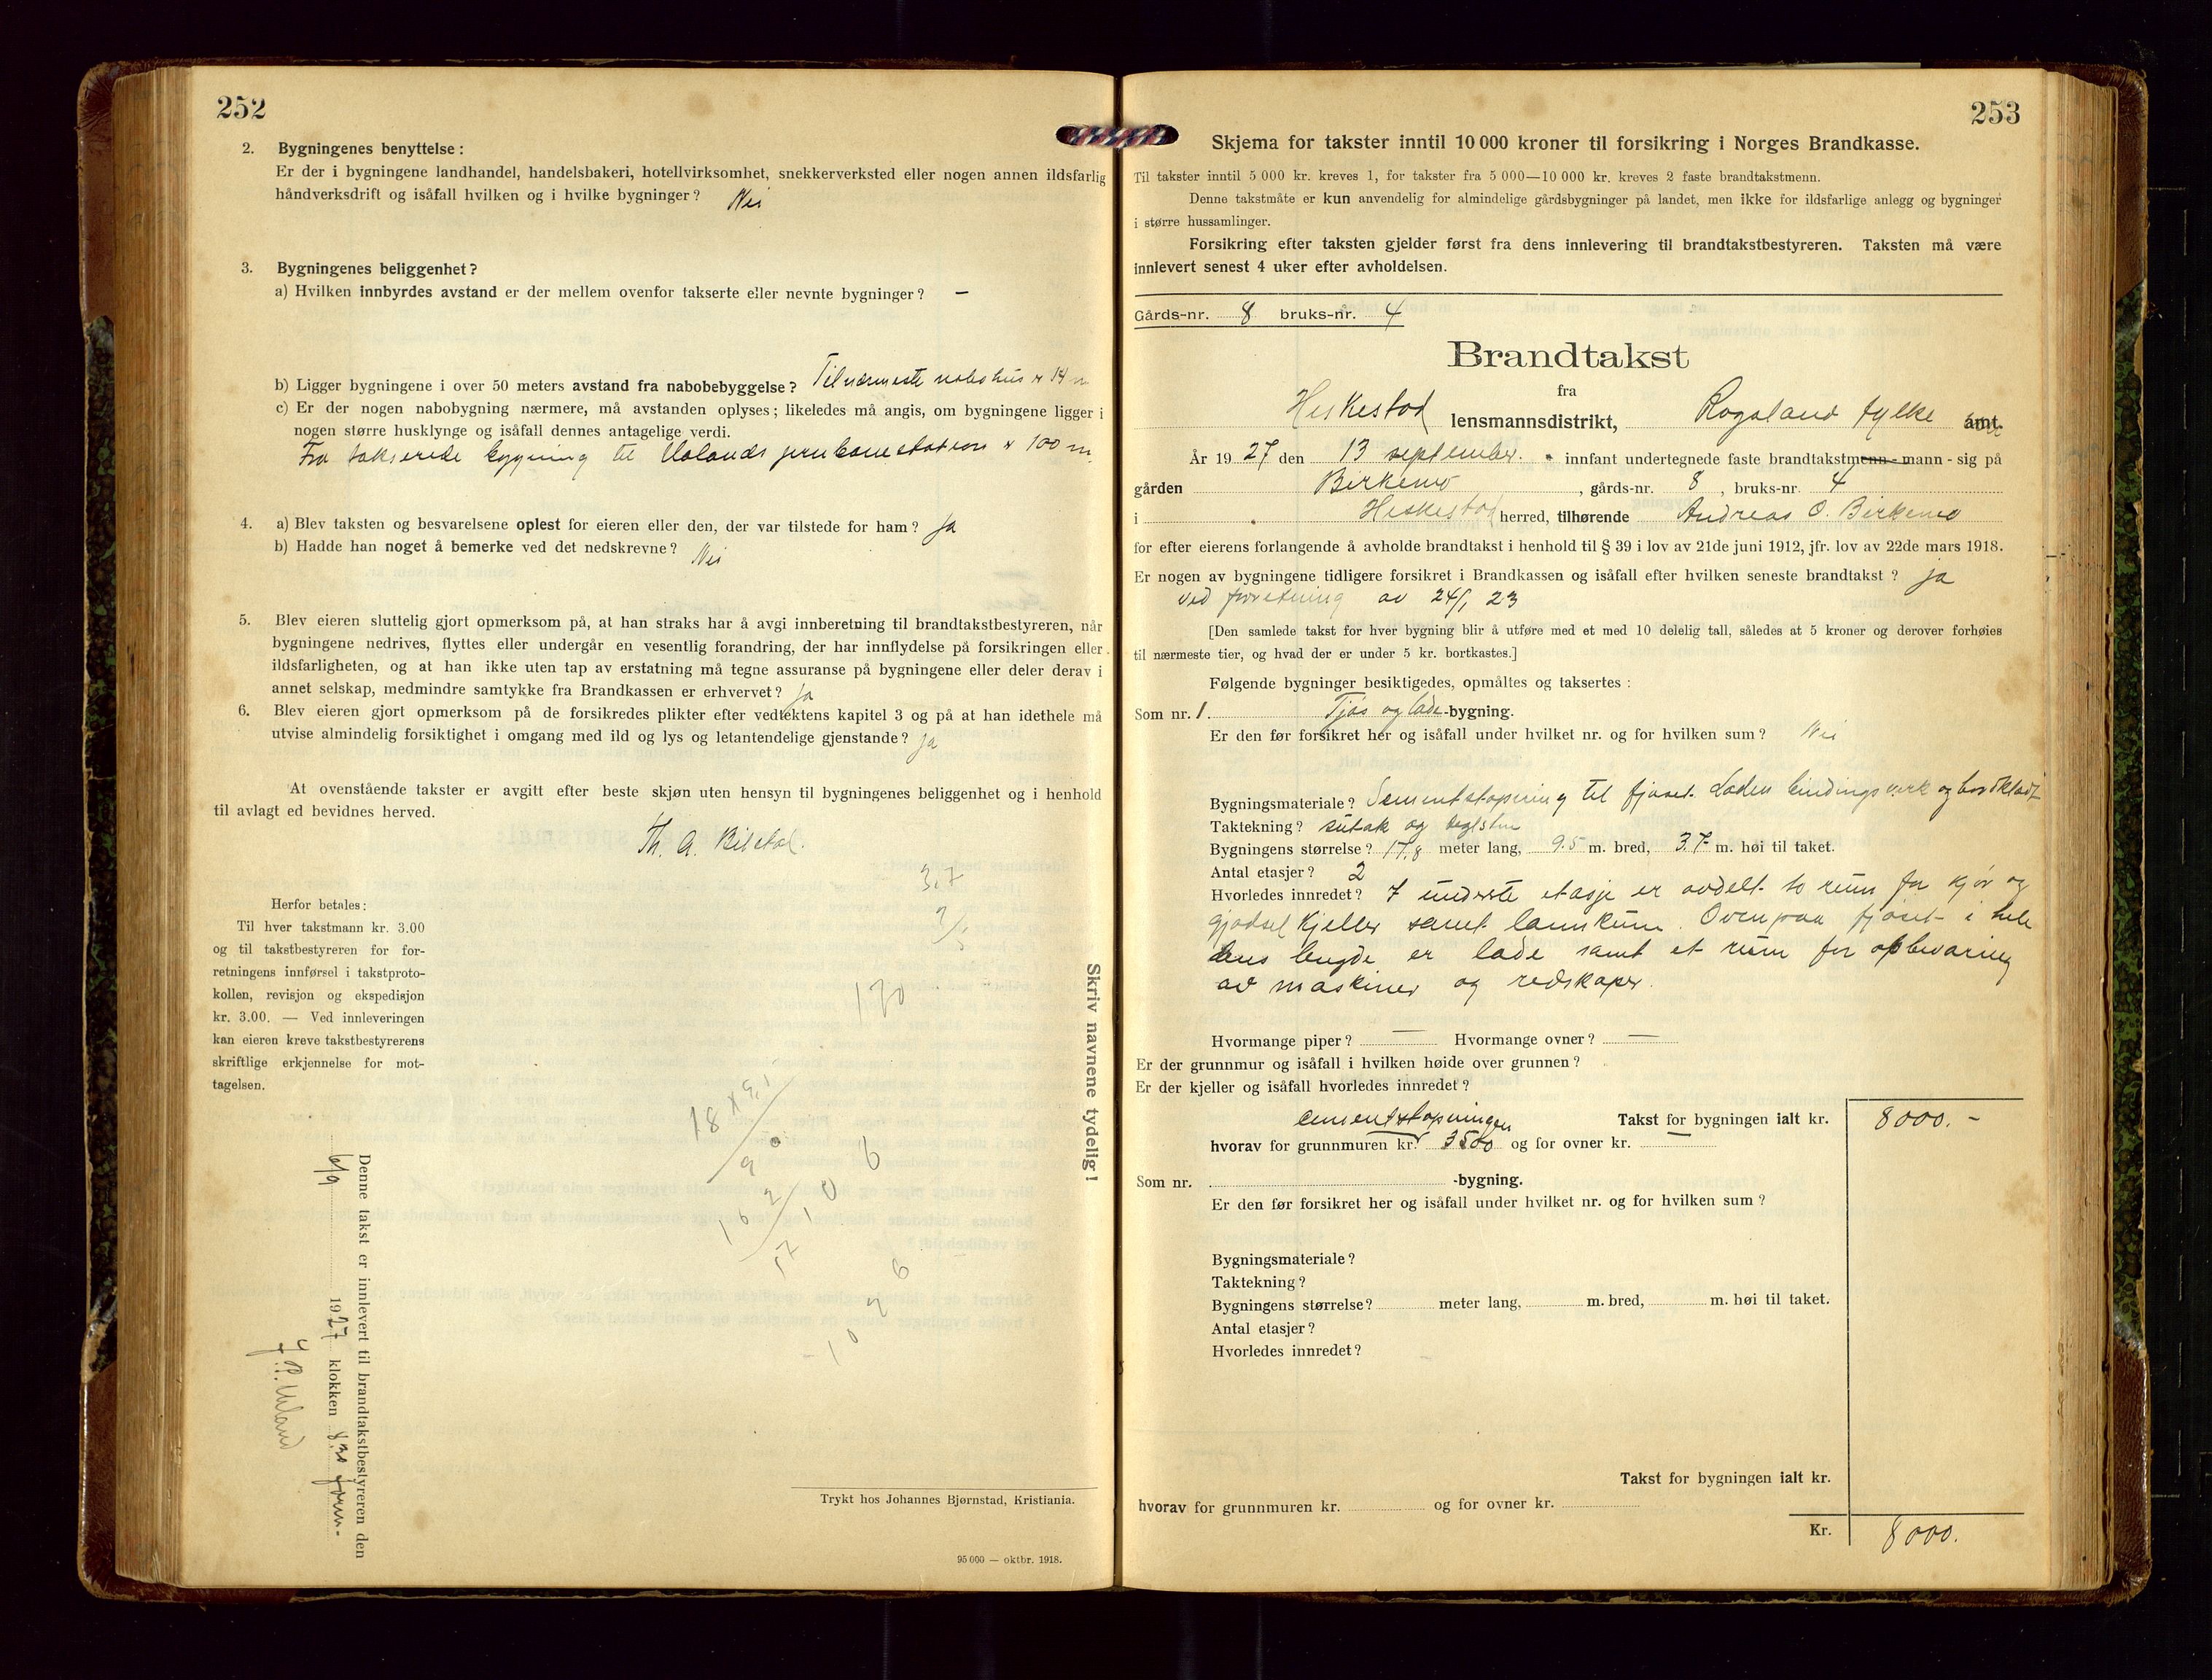 252
2. Bygningenes benyttelse:
Er der i bygningene landhandel, handelsbakeri, hotellvirksomhet, snekkerverksted eller nogen annen ildsfarlig
håndverksdrift og isåfall hvilken og i hvilke bygninger? Nei
3. Bygningenes beliggenhet?
a) Hvilken innbyrdes avstand er der mellem ovenfor takserte eller nevnte bygninger? —
b) Ligger bygningene i over 50 meters avstand fra nabobebyggelse? Til nærmeste nabohus er 14 m
c) Er der nogen nabobygning nærmere, må avstanden oplyses; likeledes må angis, om bygningene ligger i
nogen større husklynge og isåfall dennes antagelige verdi.
Fra takserede bygning til Ualands jernbanestation er 100 m.
4. a) Blev taksten og besvarelsene oplest for eieren eller den, der var tilstede for ham? Ja
b) Hadde han noget å bemerke ved det nedskrevne? Nei
5. Blev eieren sluttelig gjort opmerksom på, at han straks har å avgi innberetning til brandtakstbestyreren, når
bygningene nedrives, flyttes eller undergår en vesentlig forandring, der har innflydelse på forsikringen eller
ildsfarligheten, og at han ikke uten tap av erstatning må tegne assuranse på bygningene eller deler derav i
annet selskap, medmindre samtykke fra Brandkassen er erhvervet? Ja
6. Blev eieren gjort opmerksom på de forsikredes plikter efter vedtektens kapitel 3 og på at han idethele må
utvise almindelig forsiktighet i omgang med ild og lys og letantendelige gjenstande? Ja
At ovenstående takster er avgitt efter beste skjøn uten hensyn til bygningenes beliggenhet og i henhold
til avlagt ed bevidnes herved.
Th. A. Bilstad.
3.7
Herfor betales:
Til hver takstmann kr. 3.00
og til takstbestyreren for for-
retningens innførsel i takstproto-
kollen, revisjon og ekspedisjon
kr. 3.00. — Ved innleveringen
kan eieren kreve takstbestyrerens
skriftlige erkjennelse for mot-
tagelsen.
170
18 x 9,1
Skriv navnene tydelig!
Denne takst er innlevert til brandtakstbestyreren den
6/9 1927 klokken 8.30 form.
P. Ueland
Trykt hos Johannes Bjørnstad, Kristiania.
95 000 — oktbr. 1918.
253
Skjema for takster inntil 10 000 kroner til forsikring i Norges Brandkasse.
Til takster inntil 5 000 kr. kreves 1, for takster fra 5 000—10 000 kr. kreves 2 faste brandtakstmenn.
Denne takstmåte er kun anvendelig for almindelige gårdsbygninger på landet, men ikke for ildsfarlige anlegg og bygninger
i større hussamlinger.
Forsikring efter taksten gjelder først fra dens innlevering til brandtakstbestyreren. Taksten må være
innlevert senest 4 uker efter avholdelsen.
Gårds-nr. 8 bruks-nr. 4
Brandtakst
fra
Heskestad lensmannsdistrikt, Rogaland fylke amt.
År 1927 den 13 september. innfant undertegnede faste brandtakstmenn - mann - sig på
gården Birkemo, gårds-nr. 8, bruks-nr. 4
i Heskestad herred, tilhørende Andreas O. Birkemo
for efter eierens forlangende å avholde brandtakst i henhold til § 39 i lov av 21de juni 1912, jfr. lov av 22de mars 1918.
Er nogen av bygningene tidligere forsikret i Brandkassen og isåfall efter hvilken seneste brandtakst? Ja
ved forretning av 24/1 23
[Den samlede takst for hver bygning blir å utføre med et med 10 delelig tall, således at 5 kroner og derover forhøies
til nærmeste tier, og hvad der er under 5 kr. bortkastes.]
Følgende bygninger besiktigedes, opmåltes og taksertes:
Som nr. 1. Fjøs og lade-bygning.
Er den før forsikret her og isåfall under hvilket nr. og for hvilken sum? Nei
Bygningsmateriale? Sementstøpning til fjøset. Laden bindingsverk og bordklædt
Taktekning? sutak og teglsten
Bygningens størrelse? 17,8 meter lang, 9.5 m. bred, 3.7 m. høi til taket.
Antal etasjer? 2
Hvorledes innredet? I underste etasje er avdelt to rum for kjør og
gjødsel kjeller samt lamrum. Ovenpaa fjøset i hele
dens lengde er lade samt et rum for opbevaring
av maskiner og redskaper.
Hvormange piper? — Hvormange ovner? —
Er der grunnmur og isåfall i hvilken høide over grunnen?
Er der kjeller og isåfall hvorledes innredet?
cementstøpningen Takst for bygningen ialt kr. 8000. -
hvorav for grunnmuren kr. 3500 og for ovner kr. —
Som nr. -bygning.
Er den før forsikret her og isåfall under hvilket nr. og for hvilken sum?
Bygningsmateriale?
Taktekning?
Bygningens størrelse? meter lang, m. bred, m. høi til taket.
Antal etasjer?
Hvorledes innredet?
Takst for bygningen ialt kr.
hvorav for grunnmuren kr. og for ovner kr.
Kr. 8000.